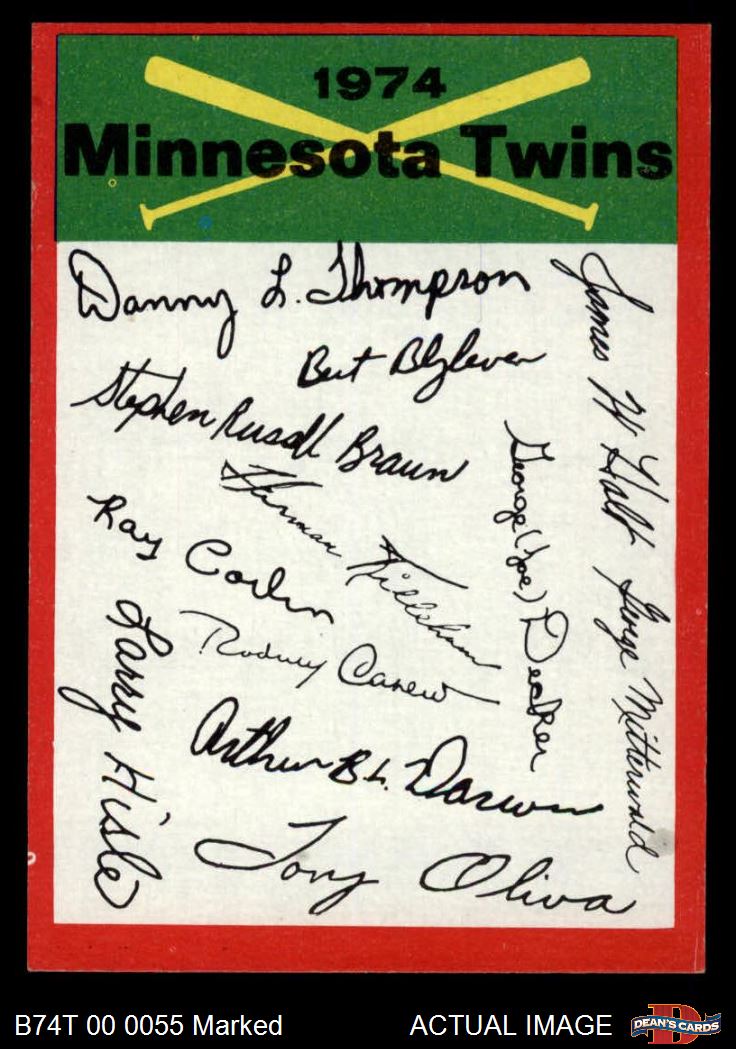 1974
Minnesota Twins
Danny L. Thompson
Bert Blyleven
Stephen Russell Braun
James W Holt
George (Joe) Decker
Harmon Killebrew
Ray Corbin
George Mitterwald
Larry Hisle
Rodney Carew
Arthur B L. Darwin
Tony Oliva
B74T 00 0055 Marked
ACTUAL IMAGE
D
DEAN'S CARDS